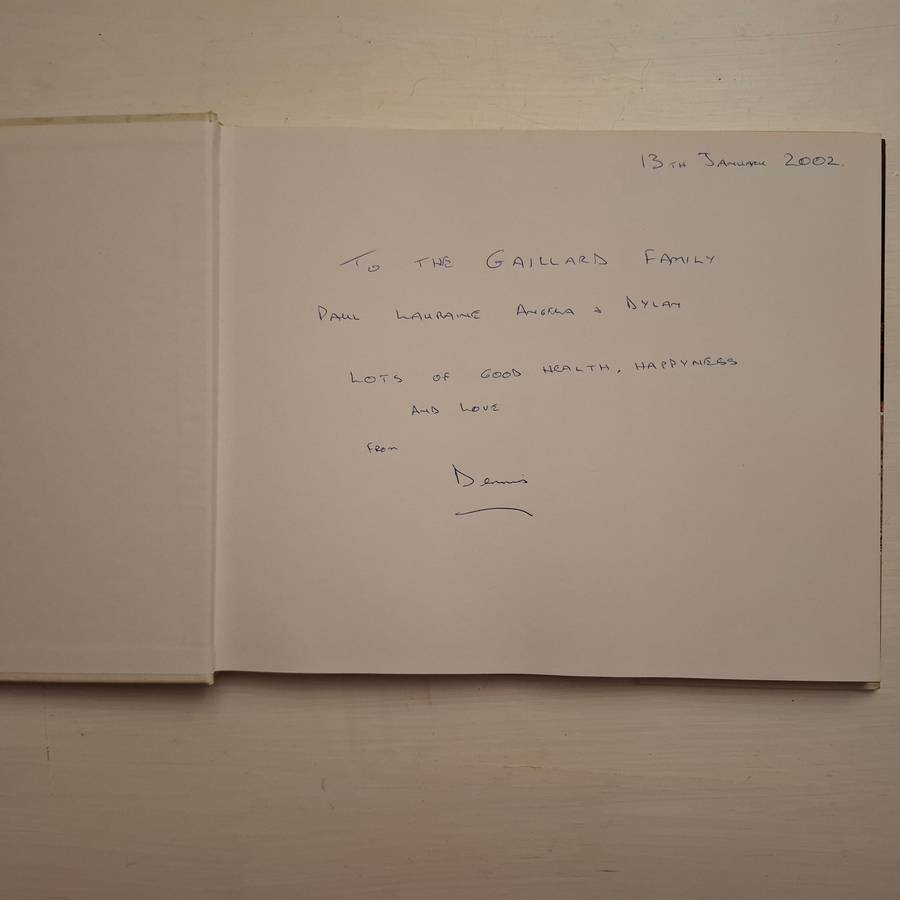 13TH JANUARY 2002.
TO THE GAILLARD FAMILY
PAUL LAURAINE ANGELA & DYLAN
LOTS OF GOOD HEALTH, HAPPYNESS
AND LOVE
FROM
Dennis